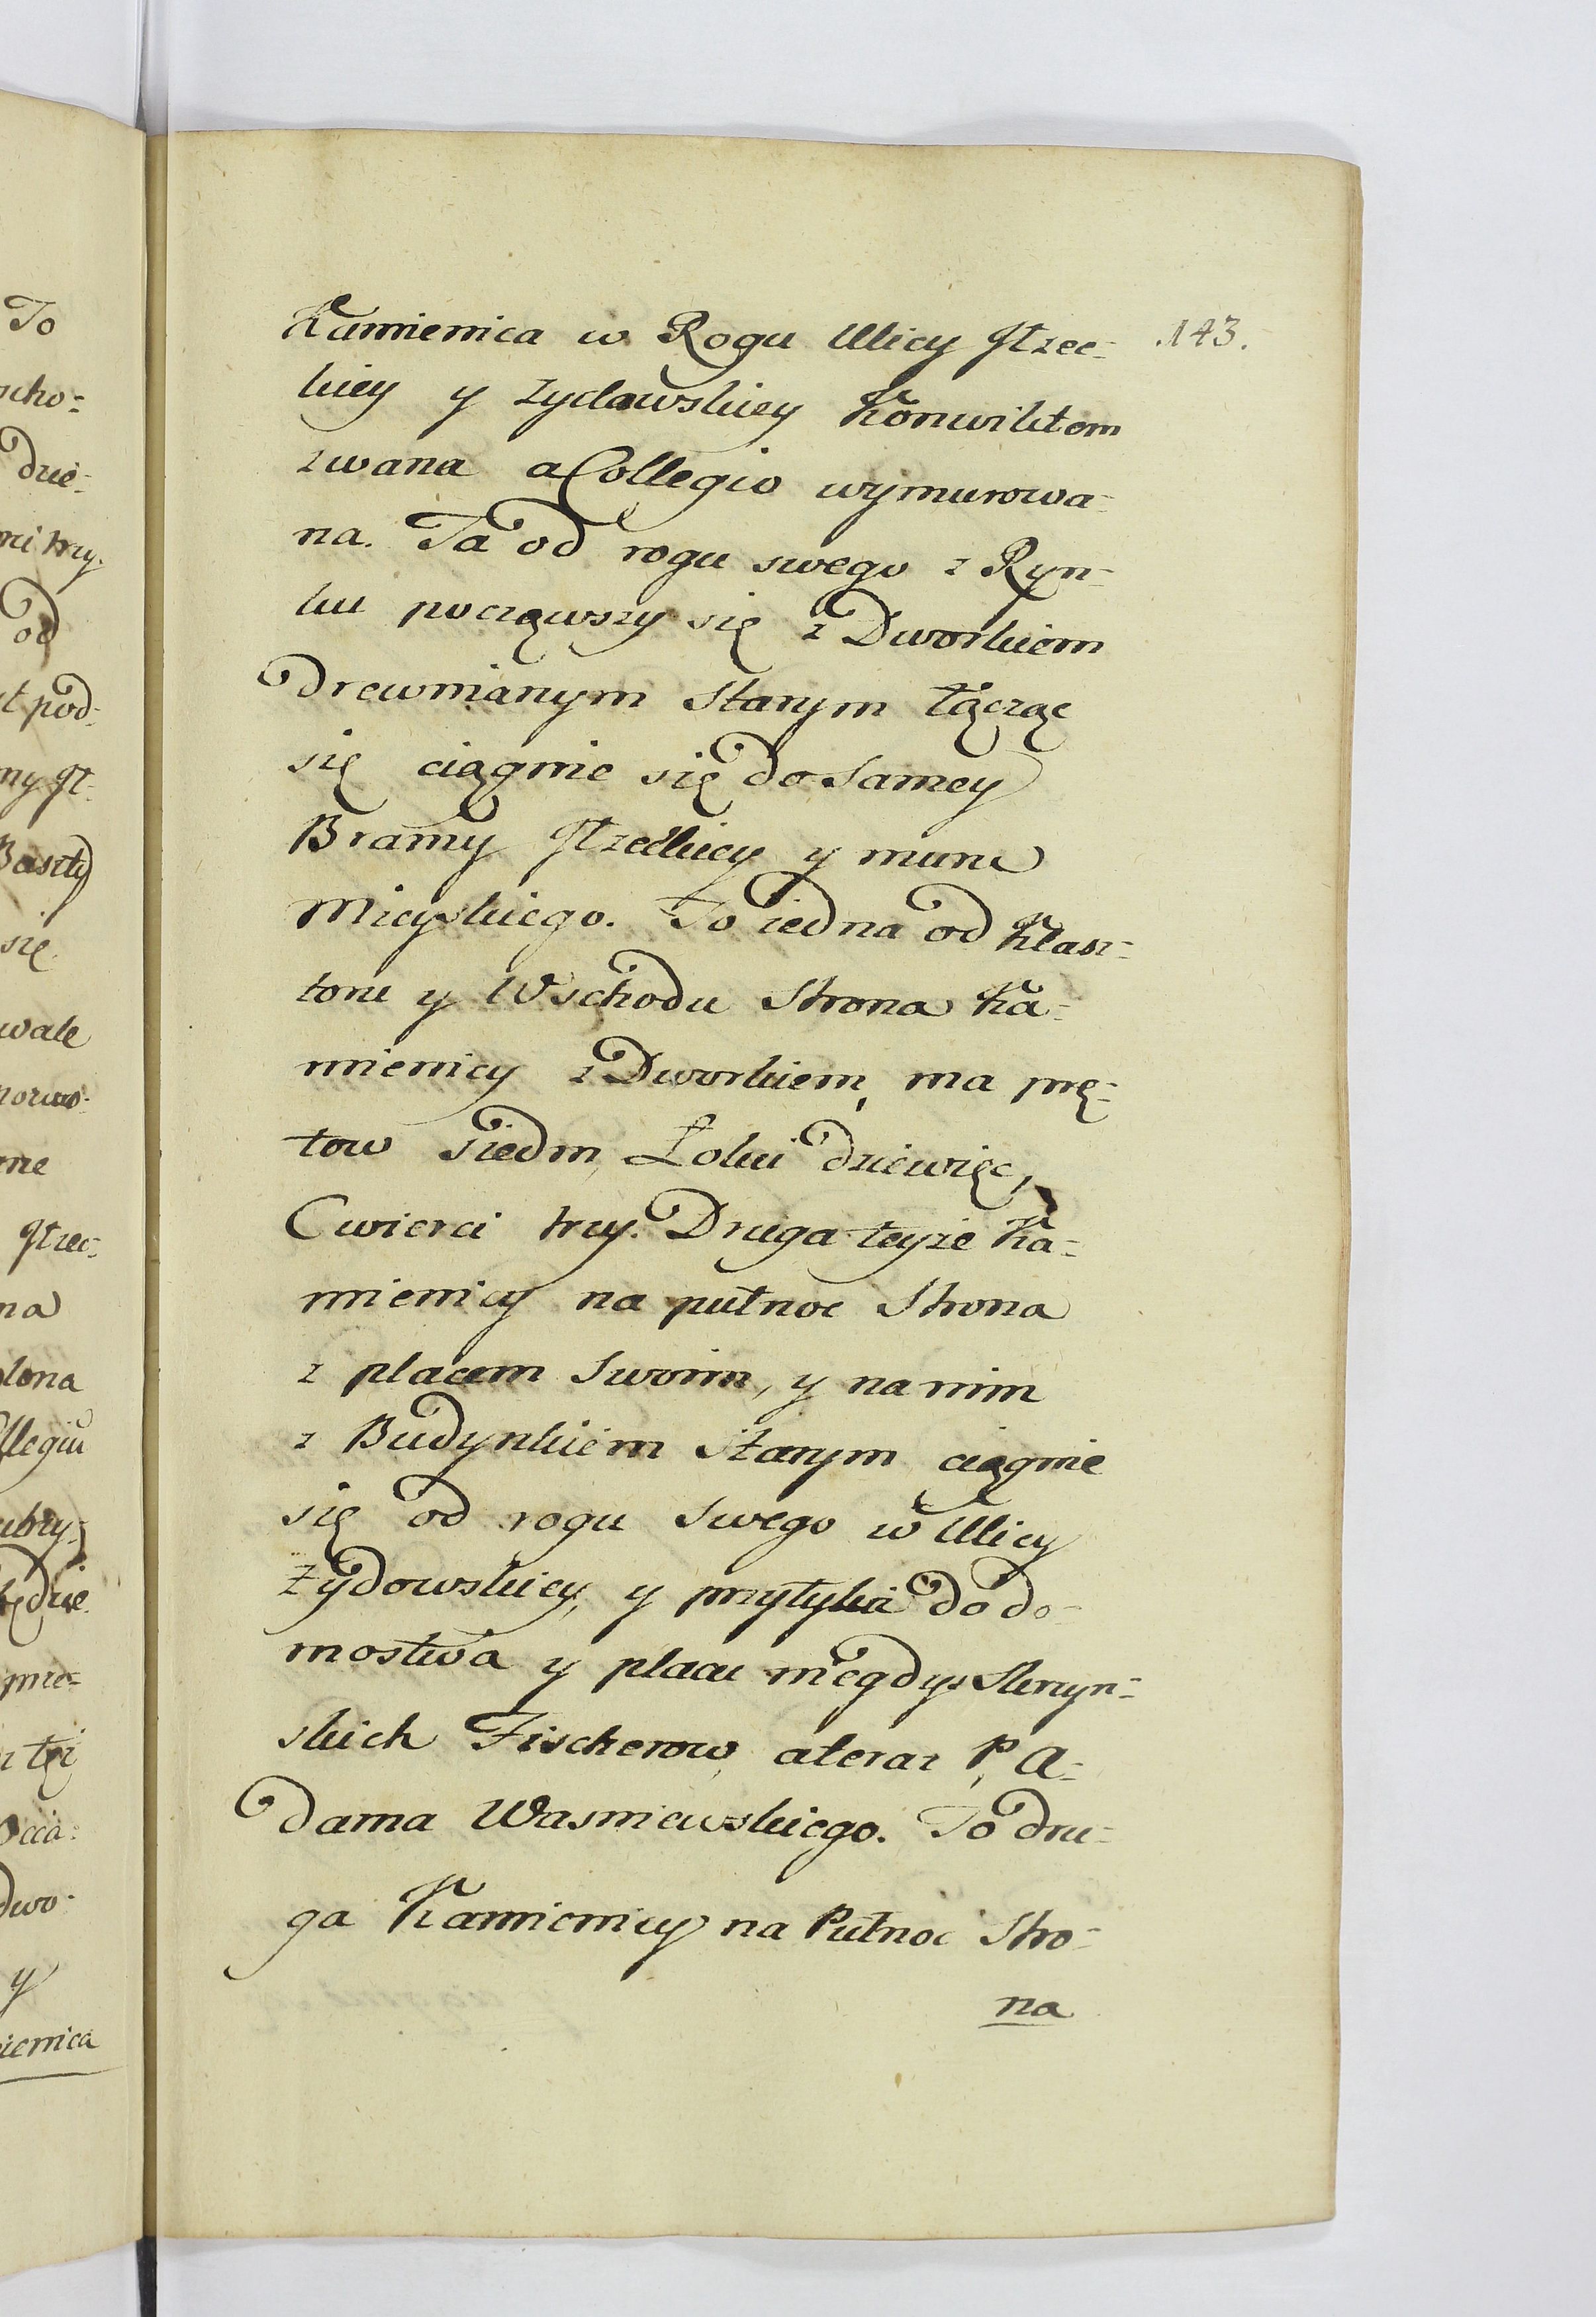 To
scho-
dzie-
mi trzy.
od
pod-
Baszty
się.
wale
ne
Grzec-
na
lona
llegiu
y
ienica
143.
Kamienica w Rogu Ulicy Grzec-
kiey y Zydawskiey Konwiktem
zwana a Collegio wymurowa-
na. Ta od rogu swego z Ryn-
ku począwszy się z Dworkiem
drewnianym starym łącząc
się ciągnie się do samey
Bramy Grzeckiey y muru
Mieyskiego. To iedna od Klasz-
toru y Wschodu Strona Ka-
mienicy z Dworkiem, ma prę-
tow siedm, Łokci dziewięc,
Cwierci trzy. Druga teyze Ka-
mienicy na pułnoc Strona
z placem swoim, y na nim
z Budynkiem starym ciągnie
się od rogu swego w Ulicy
Zydowskiey, y przytyka do do-
mostwa y placu niegdys Skrzyn-
skich Fischerow, a teraz P. A-
dama Wasniewskiego. To dru-
ga Kamienicy na Pułnoc Stro-
na